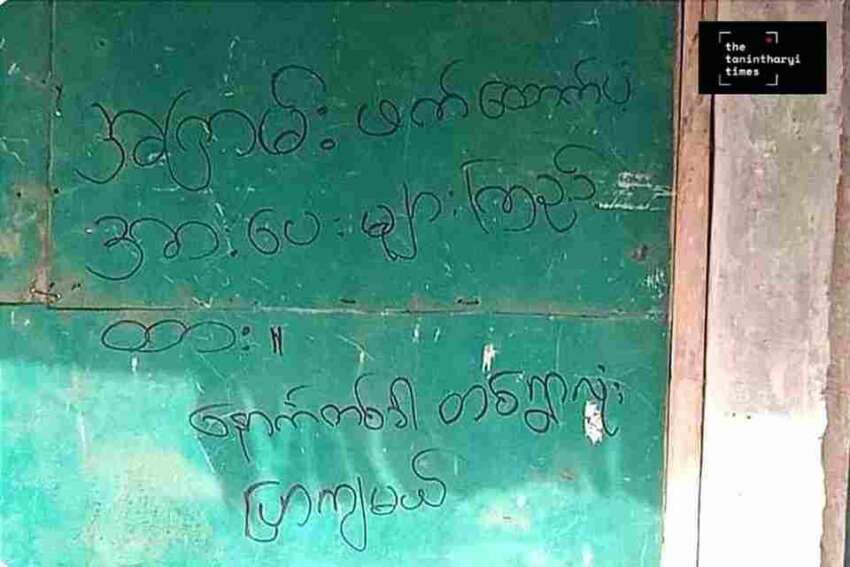 အကြမ်းဖက်ထောက်ပံ့
အားပေးများကြည့်
ထား။
နောက်တစ်ခါ တစ်ရွာလုံး
ပြာကျမယ်
the
tanintharyi
times